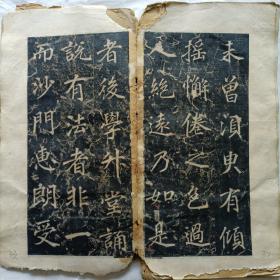 未曾湏臾有傾
揺懈倦之色過
人絶遠乃如是
者後學升堂誦
說有法者非一
而沙門惠朗受